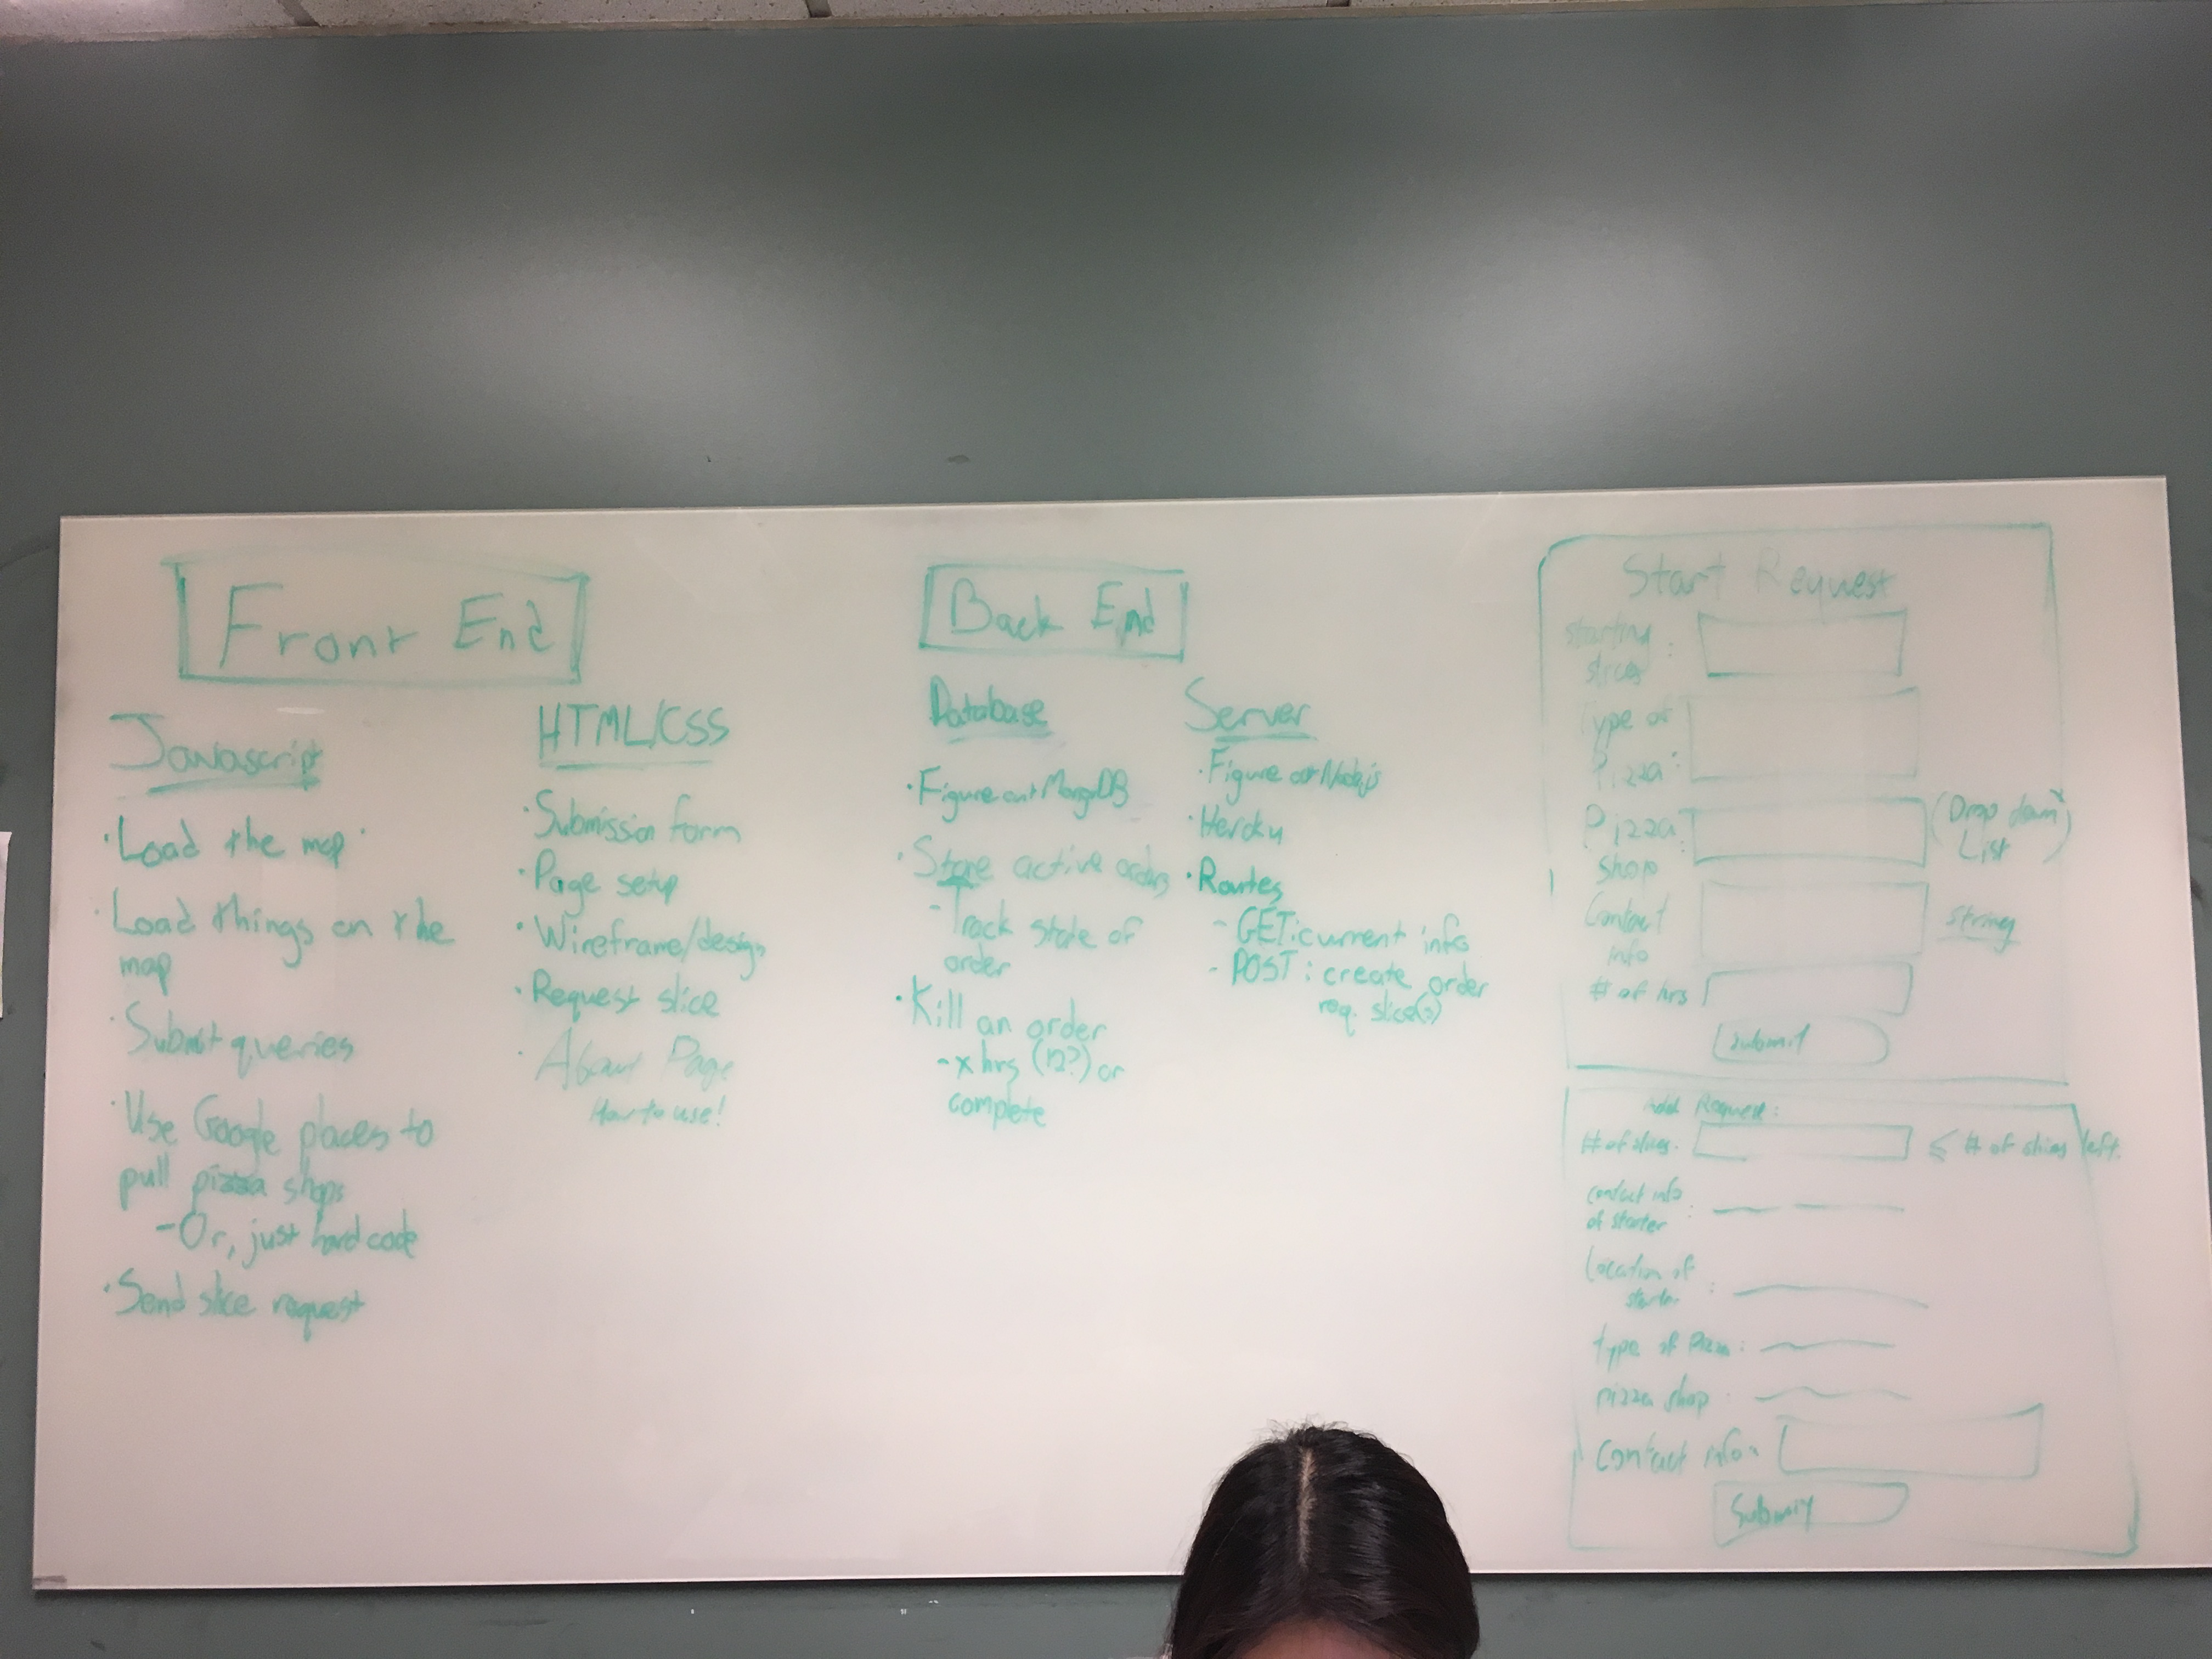 Front End
Javascript
· Load the map
· Load things on the
map
· Submit queries
· Use Google places to
pull pizza shops
- Or, just hard code
· Send slice request
HTML/CSS
· Submission form
· Page setup
· Wireframe/design
· Request slice
· About Page
How to use!
Back End
Database
· Figure out MongoDB
· Store active orders
- Track state of
order
· Kill an order
- x hrs (12?) or
complete
Server
· Figure out Nodejs
· Heroku
· Routes
- GET: current info
- POST: create order
req. slice(s)
Start Request
starting
slices :
Type of
Pizza :
Pizza
shop : (Drop down
List)
Contact
info string
# of hrs
submit
Add Request:
# of slices: ≤ # of slices left.
contact info
of starter :
Location of
starter :
type of Pizza :
pizza shop :
Contact info:
Submit